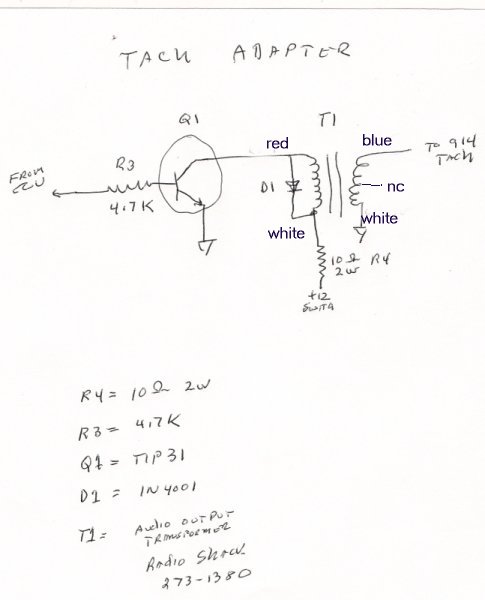 TACH ADAPTER
Q1
T1
red
blue
TO 914
TACH
FROM
R3
D1
nc
4.7K
white
white
10Ω R4
2W
+12
R4 = 10Ω 2W
R3 = 4.7K
Q1 = TIP31
D1 = 1N4001
T1= AUDIO OUTPUT
TRANSFORMER
RADIO SHACK
273-1380